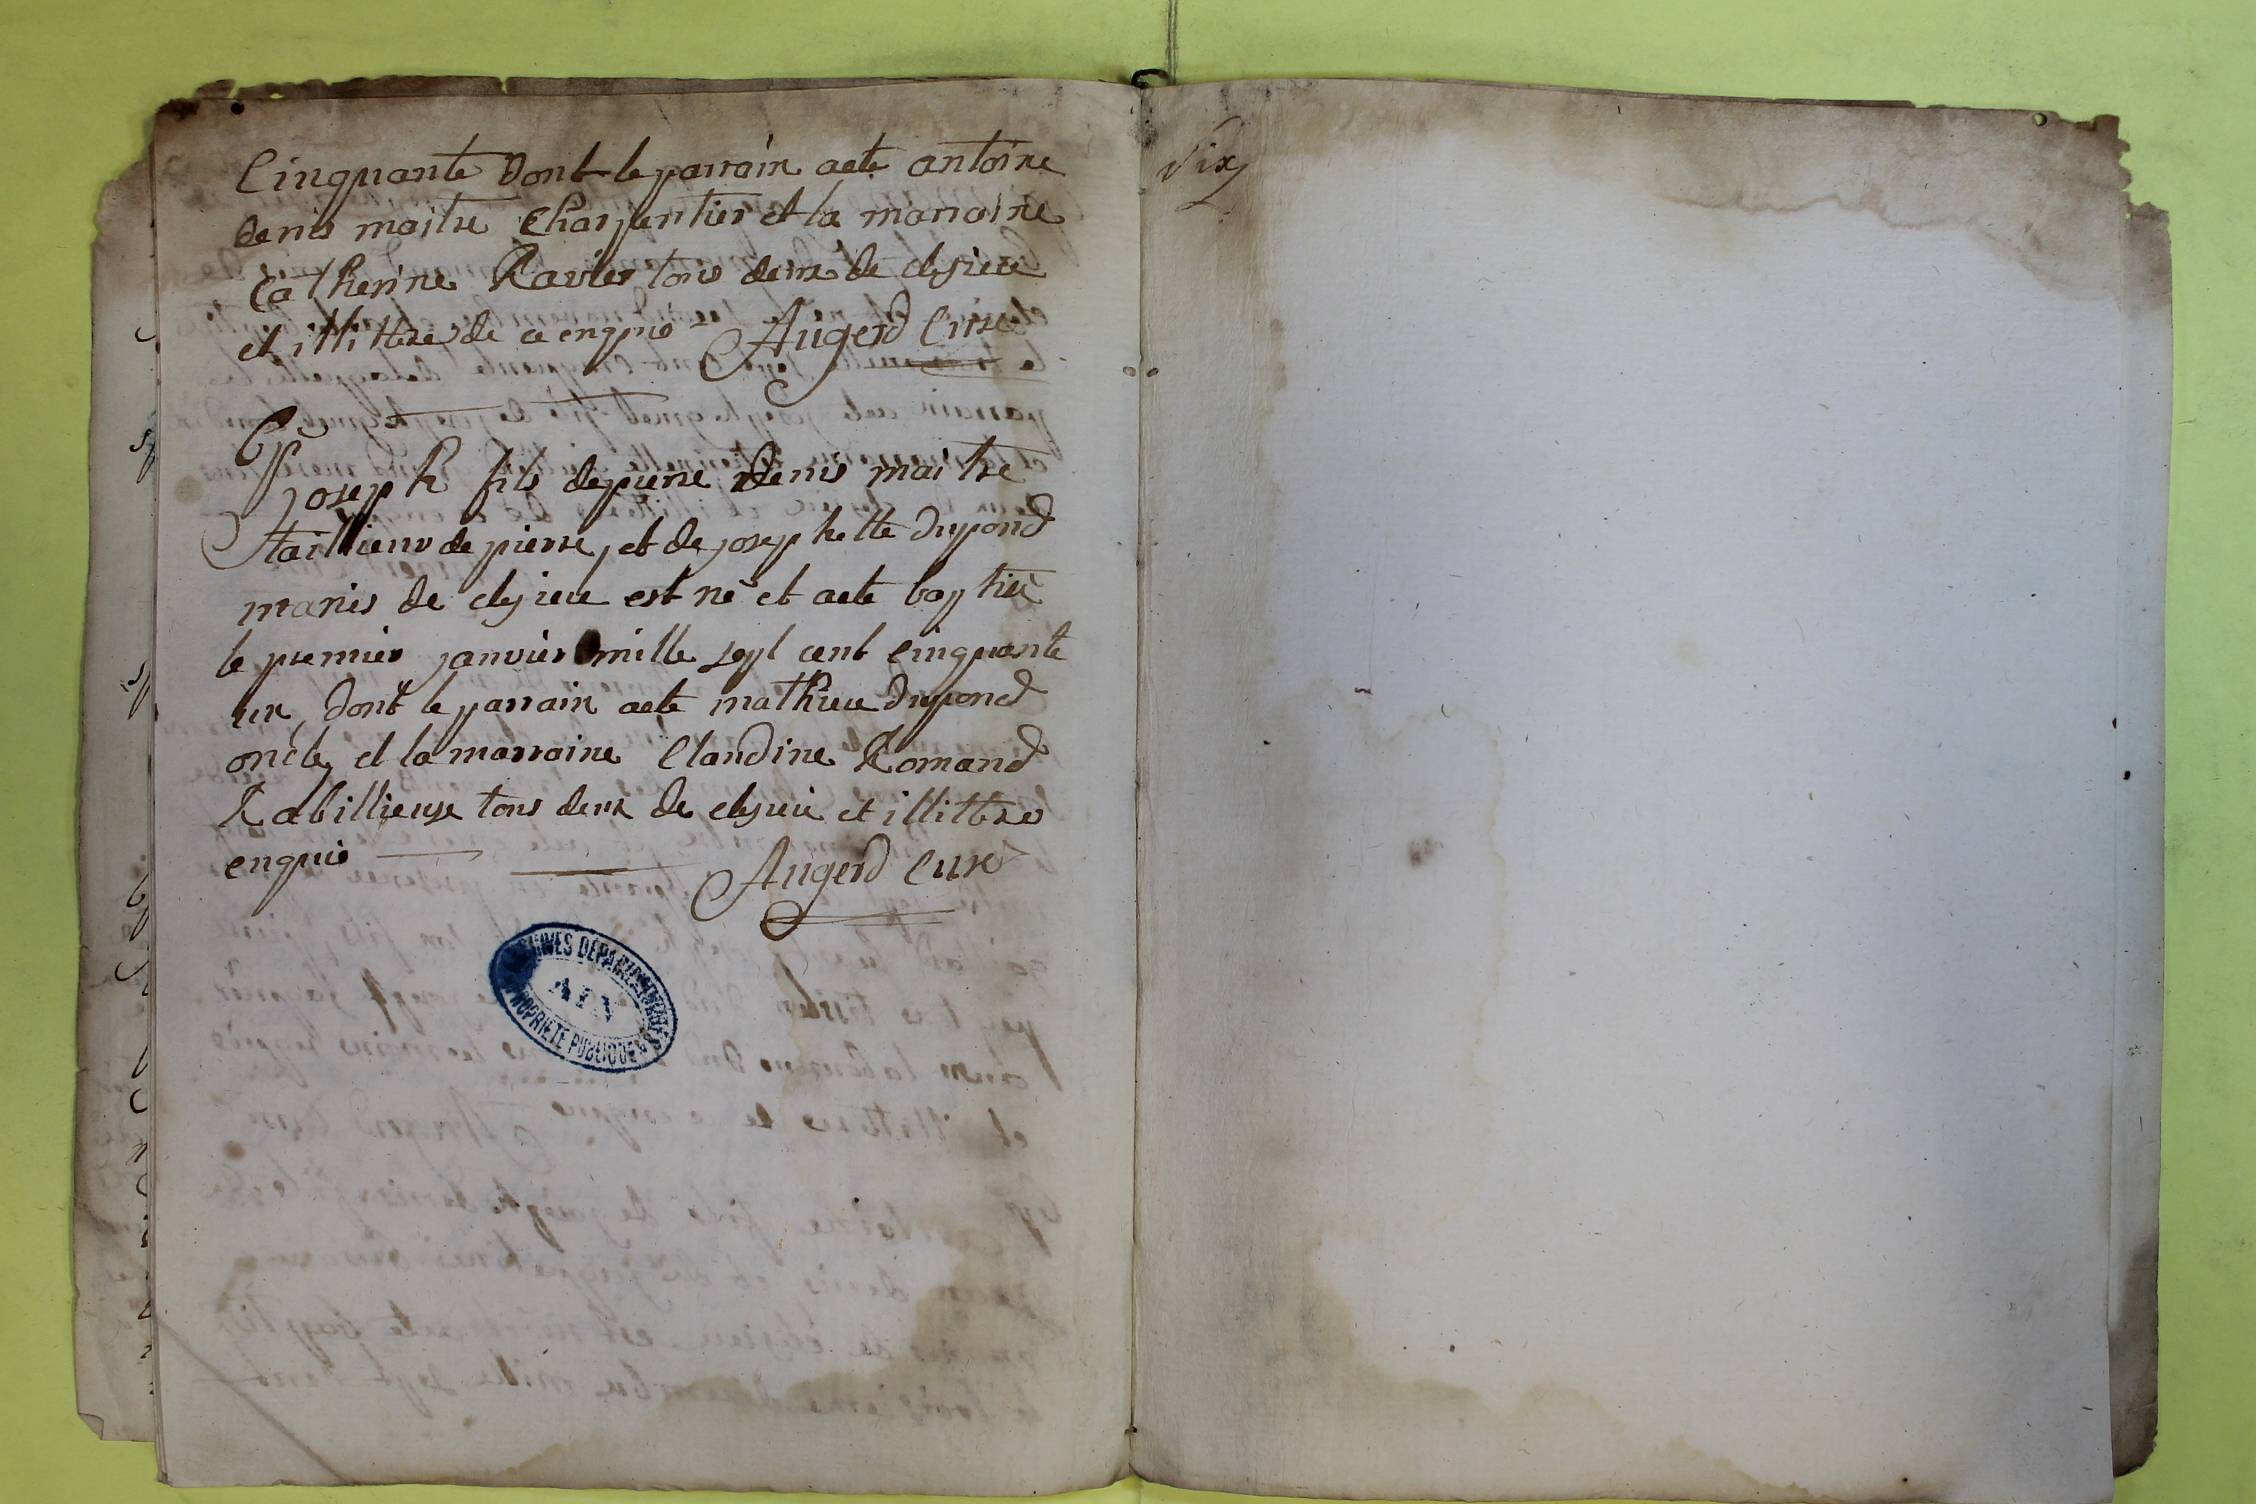 Cinquante Dont le parrain aete antoine
denis maitre Charpentier et la marraine
Catherine Ravier tous deux de cleyzieu
et illittere de ce enquis Augerd Cure
Bp
joseph fils de pierre denis maitre
tailleur de pierre, et de josephette Dupond
mariés de cleyzieu est né et aete baptisé
le premier janvier mille sept cent cinquante
un, dont le parrain aete mathieu Dupond
oncle, et la marraine Claudine Romand
Rabillieuse tous deux de cleyzieu et illittere
enquis Augerd Cure
ARCHIVES DÉPARTEMENTALES
AIN
PROPRIÉTÉ PUBLIQUE
Six